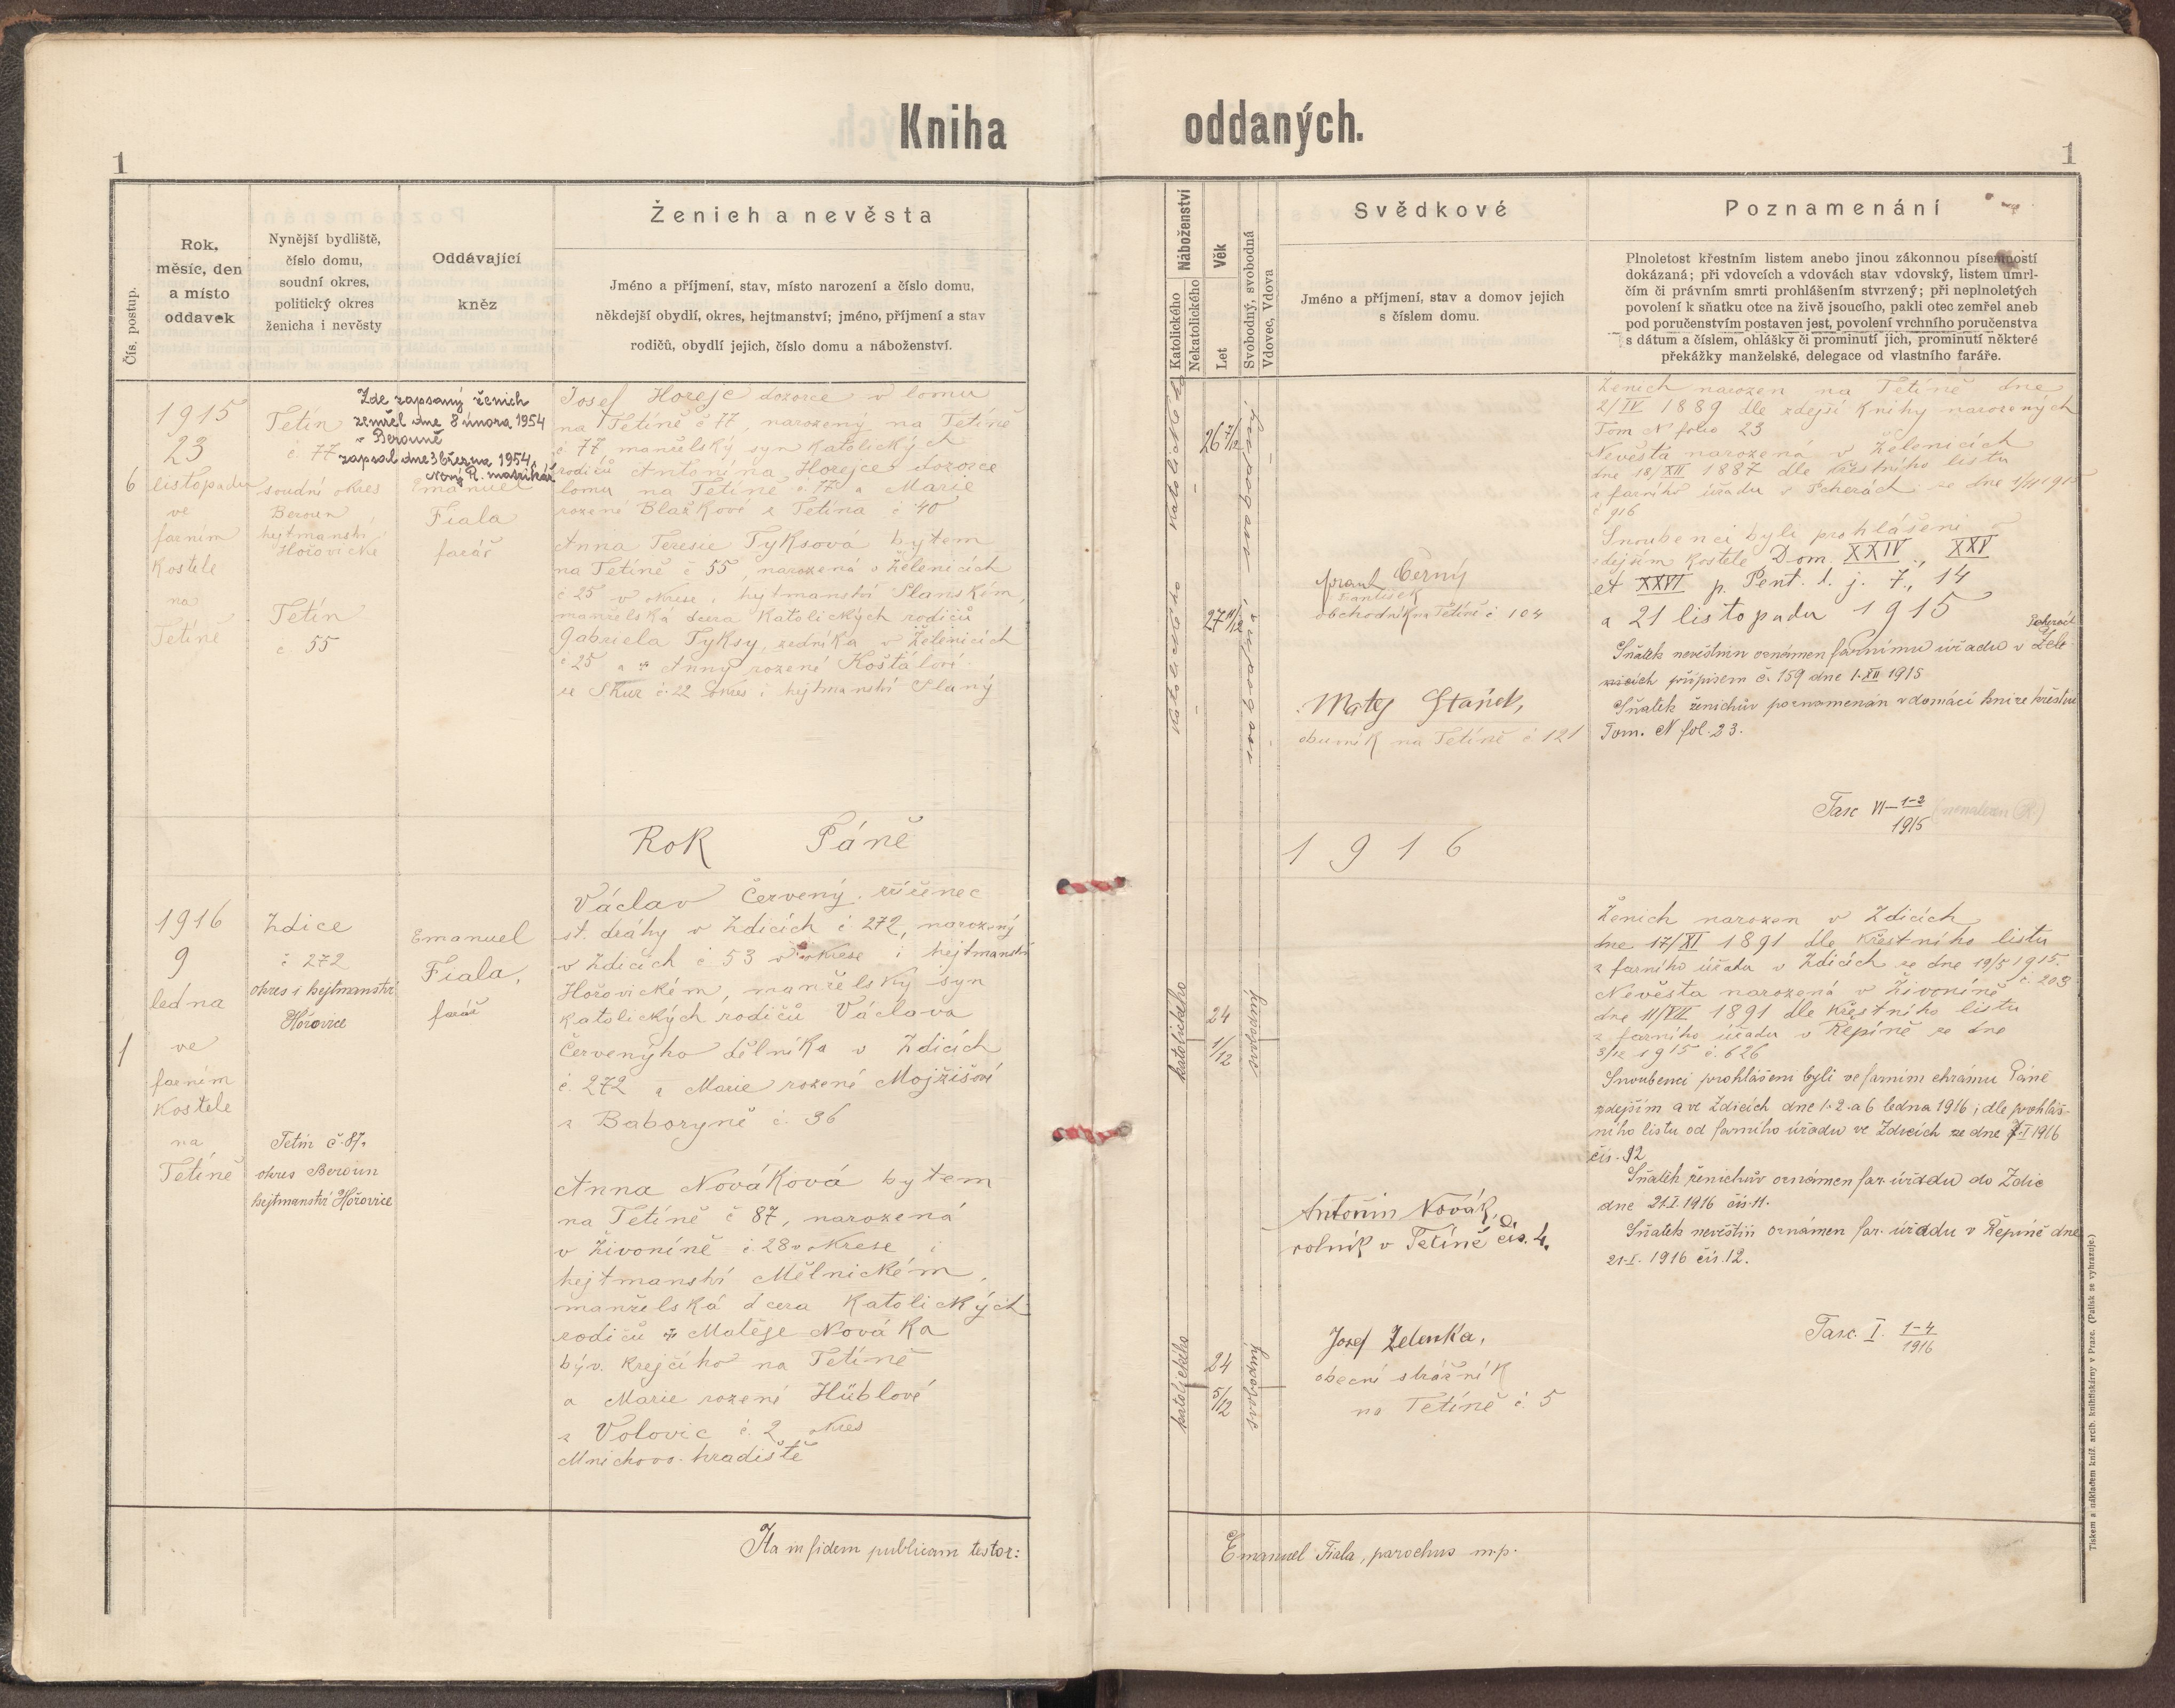 Kniha oddaných.
1
1
Čís. postup.
Rok,
měsíc, den
a místo
oddavek
Nynější bydliště,
číslo domu,
soudní okres,
politický okres
ženicha i nevěsty
Oddávající
kněz
Ženich a nevěsta
Jméno a příjmení, stav, místo narození a číslo domu,
někdejší obydlí, okres, hejtmanství; jméno, příjmení a stav
rodičů, obydlí jejich, číslo domu a náboženství.
Náboženství
Katolického
Nekatolického
Věk
Let
Svobodný, svobodná
Vdovec, Vdova
Svědkové
Jméno a příjmení, stav a domov jejich
s číslem domu.
Poznamenání
Plnoletost křestním listem anebo jinou zákonnou písemností
dokázaná; při vdovcích a vdovách stav vdovský, listem úmrl-
čím či právním smrti prohlášením stvrzený; při neplnoletých
povolení k sňatku otce na živě jsoucího, pakli otec zemřel aneb
pod poručenstvím postaven jest, povolení vrchního poručenstva
s dátum a číslem, ohlášky či prominutí jich, prominutí některé
překážky manželské, delegace od vlastního faráře.
6
1915
23
listopadu
ve
farním
kostele
na
Tetíně
Tetín
č. 77
soudní okres
Beroun
hejtmanství
Hořovické
Tetín
č 55
Zde zapsaný ženich
zemřel dne 8 února 1954
v Berouně
zapsal dne 3 března 1954.
Nový R. matrikář
Emanuel
Fiala
farář
Josef Horejc dozorce v lomu
na Tetíně č 77, narozený na Tetíně
č 77 manželský syn katolických
rodičů Antonína Horejce dozorce
lomu na Tetíně č. 77 a Marie
rozené Blažkové z Tetína č 40
Anna Teresie Tyksová bytem
na Tetíně č 55, narozená v Želenicích
č 25 v okrese i hejtmanství Slanském,
manželská dcera katolických rodičů
Gabriela Tyksy, zedníka v Želenicích
č 25 a Anny rozené Košťálové
ze Skur č. 22 okres i hejtmanství Slaný
katolického
katolického
26 7/12
27 11/12
svobodný
svobodná
Frant. Černý
František
obchodník na Tetíně č 104
Matěj Staněk,
obuvník na Tetíně č 121
Ženich narozen na Tetíně dne
2/IV 1889 dle zdejší knihy narozených
Tom N folio 23
Nevěsta narozená v Želenicích
dne 18/XII 1887 dle křestního listu
z farního úřadu v Pcherách ze dne 1/11 1915
č 916
Snoubenci byli prohlášeni v
zdejším kostele Dom. XXIV., XXV
et XXVI p. Pent. t. j. 7., 14
a 21 listopadu 1915
Pcherách
Sňatek nevěstin oznámen farnímu úřadu v Žele
nicích přípisem č. 159 dne 1. XII 1915
Sňatek ženichův poznamenán v domácí knize křestní
Tom. N fol. 23.
Fasc VI – 1-2
1915
Rok Páně 1916
1
1916
9
ledna
ve
farním
kostele
na
Tetíně
Zdice
č 272
okres i hejtmanství
Hořovice
Tetín č. 87.
okres Beroun
hejtmanství Hořovice
Emanuel
Fiala,
farář
Václav Červený, zřízenec
st. dráhy v Zdicích č 272, narozený
v Zdicích č 53 v okrese i hejtmanství
Hořovickém, manželský syn
katolických rodičů Václava
Červenýho dělníka v Zdicích
č. 272 a Marie rozené Mojžíšové
z Baboryně č. 36
Anna Nováková bytem
na Tetíně č 87, narozená
v Živoníně č. 28 v okrese i
hejtmanství Mělnickém,
manželská dcera katolických
rodičů Matěje Nováka
býv. krejčího na Tetíně
a Marie rozené Hüblové
z Volovic č. 2 okres
Mnichovo-hradiště
katolického
24
1/12
svobodný
katolického
24
5/12
Antonín Novák,
rolník v Tetíně čís. 4.
Josef Zelenka,
obecní strážník
na Tetíně č. 5
Ženich narozen v Zdicích
dne 17/XI 1891 dle křestního listu
z farního úřadu v Zdicích ze dne 19/5 1915.
č. 203
Nevěsta narozená v Živoníně
dne 11/VII 1891 dle křestního listu
z farního úřadu v Řepíně ze dne
3/12 1915 č. 626
Snoubenci prohlášeni byli ve farním chrámu Páně
zdejším a ve Zdicích dne 1. 2. a 6 ledna 1916 i dle prohláš-
ního listu od farního úřadu ve Zdicích ze dne 7. I 1916
čís. 12
Sňatek ženichův oznámen far. úřadu do Zdic
dne 21. I. 1916 čís. 11.
Sňatek nevěstin oznámen far. úřadu v Řepíně dne
21. I. 1916 čís. 12.
Fasc. I. 1-4
1916
Ita in fidem publicam testor:
Emanuel Fiala, parochus m.p.
Tiskem a nákladem kníž. arcib. knihtiskárny v Praze. (Patisk se vyhrazuje.)